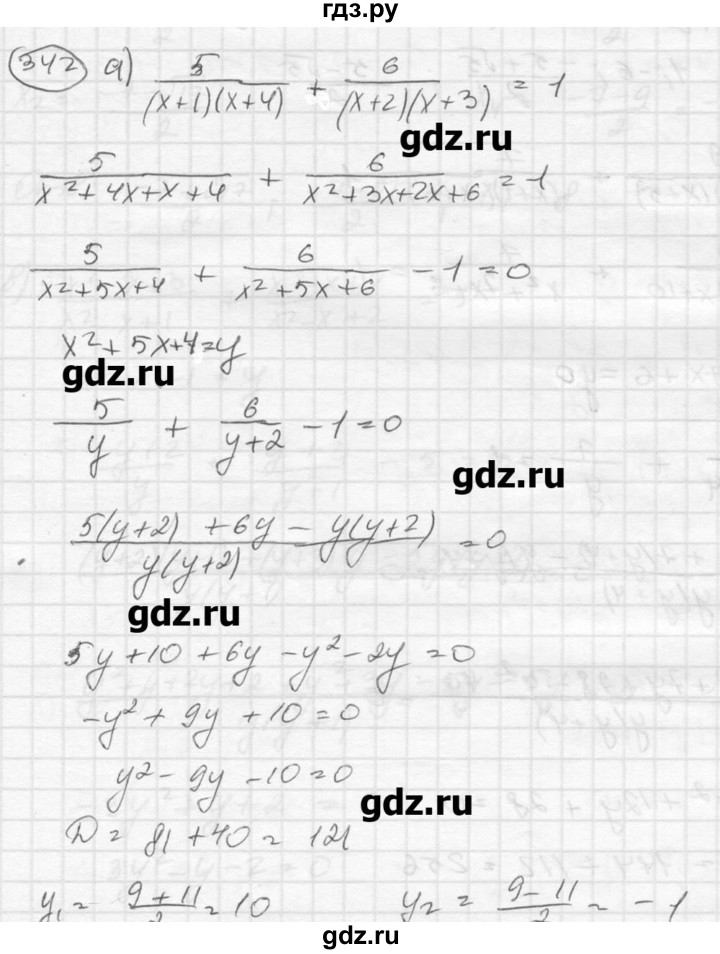 гдз.ру
342 а) 5/((x+1)(x+4)) + 6/((x+2)(x+3)) = 1
gdz.ru
5/(x²+4x+x+4) + 6/(x²+3x+2x+6) = 1
5/(x²+5x+4) + 6/(x²+5x+6) - 1 = 0
x²+5x+4=y
gdz.ru
5/y + 6/(y+2) - 1 = 0
gdz.ru
(5(y+2) + 6y - y(y+2))/(y(y+2)) = 0
gdz.ru
5y+10+6y-y²-2y=0
-y²+9y+10=0
y²-9y-10=0
gdz.ru
D=81+40=121
y₁=(9+11)/2=10 y₂=(9-11)/2=-1
gdz.ru